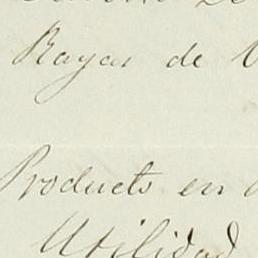 Rayas de
Producto en
Utilidad